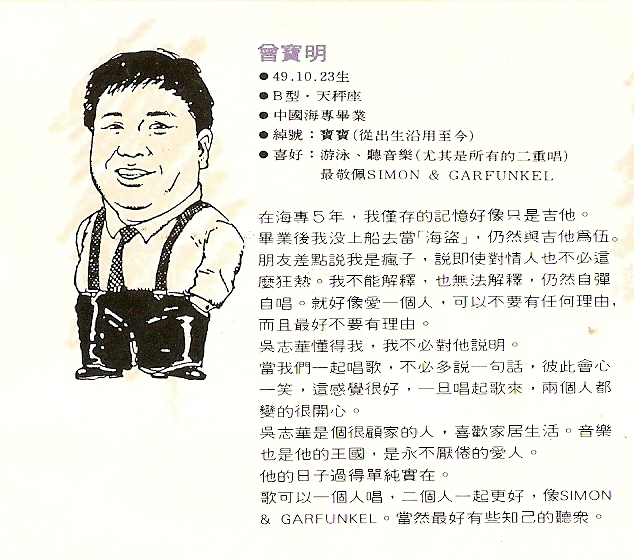 曾寶明
●49.10.23生
●B型．天秤座
●中國海專畢業
●綽號：寶寶(從出生沿用至今)
●喜好：游泳、聽音樂(尤其是所有的二重唱)
最敬佩SIMON & GARFUNKEL
在海專5年，我僅存的記憶好像只是吉他。
畢業後我没上船去當「海盜」，仍然與吉他爲伍。
朋友差點説我是瘋子，説即使對情人也不必這
麼狂熱。我不能解釋，也無法解釋，仍然自彈
自唱。就好像愛一個人，可以不要有任何理由，
而且最好不要有理由。
吳志華懂得我，我不必對他説明。
當我們一起唱歌，不必多説一句話，彼此會心
一笑，這感覺很好，一旦唱起歌來，兩個人都
變的很開心。
吳志華是個很顧家的人，喜歡家居生活。音樂
也是他的王國，是永不厭倦的愛人。
他的日子過得單純實在。
歌可以一個人唱，二個人一起更好，像SIMON
& GARFUNKEL。當然最好有些知己的聽衆。